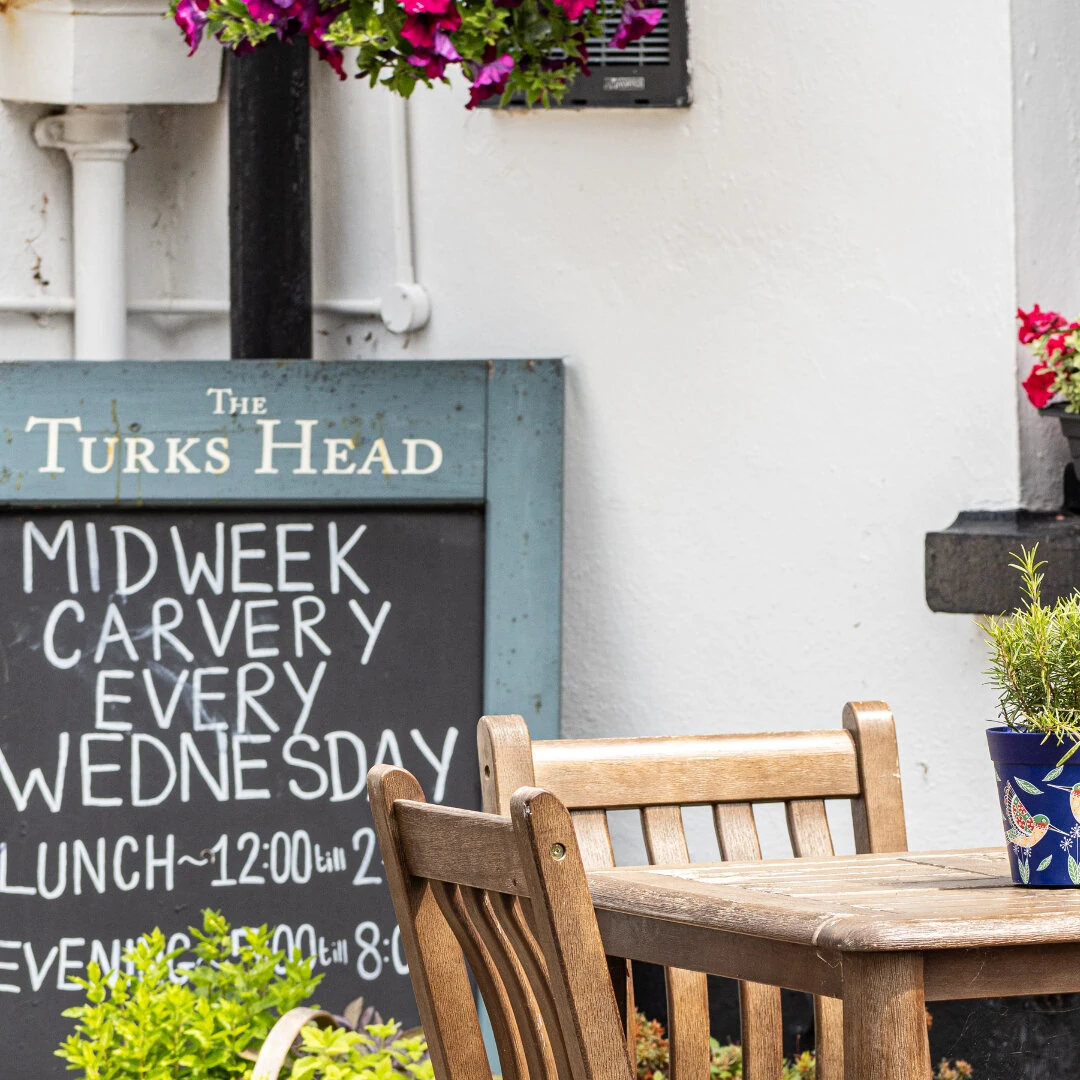 THE
TURKS HEAD
MIDWEEK
CARVERY
EVERY
WEDNESDAY
LUNCH~12:00till 2
EVENING 8:0